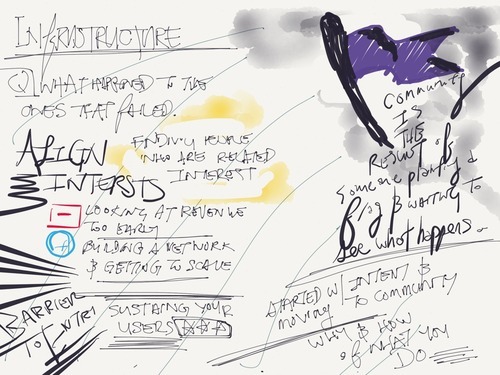 INFRASTRUCTURE
Q) WHAT HAPPENED TO THE
ONES THAT FAILED.
ALIGN
INTERSTS
FINDING PEOPLE
WHO ARE RELATED
INTEREST
- LOOKING AT REVENUE
TOO EARLY
+ BUILDING A NETWORK
& GETTING TO SCALE
BARRIER
TO ENTRY
SUSTAINING YOUR
USERS
Community
IS
THE
RESULT of
someone planting a
flag & waiting to
see what happens.
STARTED W/ INTENT &
moving TO COMMUNITY
WHY & HOW
of WHAT YOU
DO